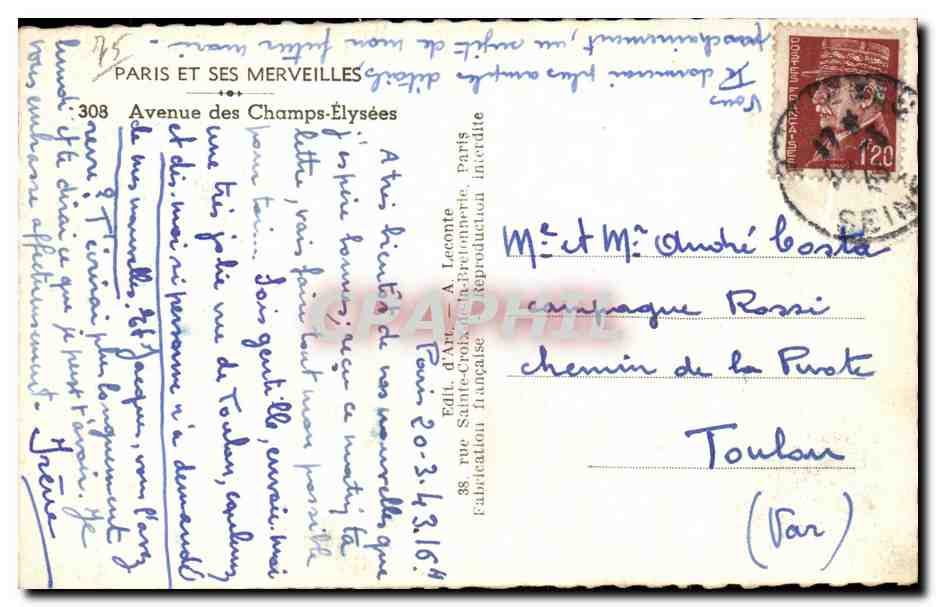 PARIS ET SES MERVEILLES
308 Avenue des Champs-Élysées
75
Paris 20-3-43. 16H
A très bientôt de nos nouvelles que
j'espère bonnes, reçu ce matin ta
lettre, vais faire tout mon possible
pour toi... Sois gentille, envoie-moi
une très jolie vue de Toulon,
et dis-moi si personne n'a demandé
de mes nouvelles. Et Jacques, vous l'avez
revu? T'écrirai plus longuement
lundi et te dirai ce que je peux t'avoir. Je
vous embrasse affectueusement.
Irène
Vous donnerai plus amples détails,
prochainement, au sujet de mon futur mari.
Edit. d'Art. — A. Leconte
38, rue Sainte-Croix-de-la-Bretonnerie, Paris
Fabrication française - Reproduction interdite
POSTES FRANÇAISES
1F20
SEINE
Me et Mr André Costa
campagne Rossi
chemin de la Pivote
Toulon
(Var)
CPAPHIL